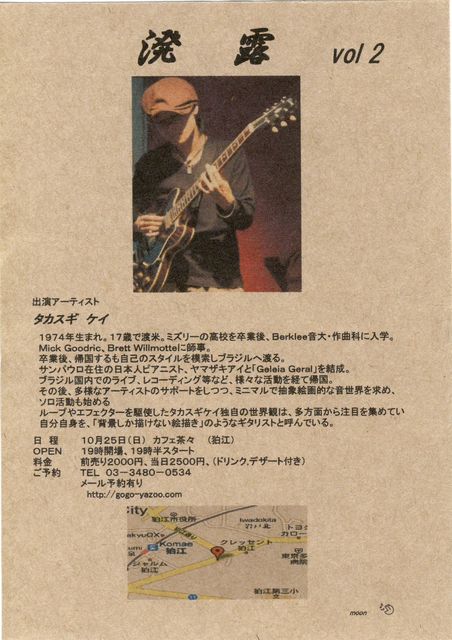 溌 露 vol 2
出演アーティスト
タカスギ ケイ
1974年生まれ。17歳で渡米。ミズリーの高校を卒業後、Berklee音大・作曲科に入学。
Mick Goodric, Brett Willmotteに師事。
卒業後、帰国するも自己のスタイルを模索しブラジルへ渡る。
サンパウロ在住の日本人ピアニスト、ヤマザキアイと「Geleia Geral」を結成。
ブラジル国内でのライブ、レコーディング等など、様々な活動を経て帰国。
その後、多様なアーティストのサポートをしつつ、ミニマルで抽象絵画的な音世界を求め、
ソロ活動も始める
ループやエフェクターを駆使したタカスギケイ独自の世界観は、多方面から注目を集めてい
自分自身を、「背景しか描けない絵描き」のようなギタリストと呼んでいる。
日 程 10月25日(日) カフェ茶々 (狛江)
OPEN 19時開場、19時半スタート
料金 前売り2000円、当日2500円、(ドリンク,デザート付き)
ご予約 TEL 03-3480-0534
メール予約有り
http://gogo-yazoo.com
City
狛江市役所
Iwadokita
岩戸北
トヨ
カロー
akyuQX
Komae
狛江
クレッセント
狛江
東京多
病院
ジャルム
狛江
狛江第三小
moon